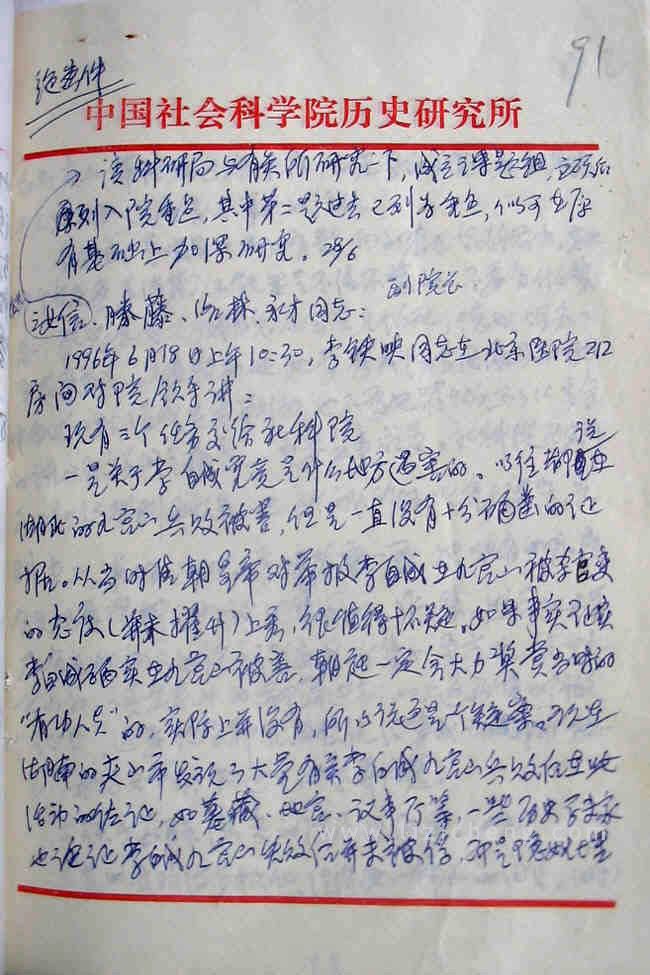 91
中国社会科学院历史研究所
请科研局与有关所研究一下,成立课题组,立项后
列入院重点,其中第二题过去已列为重点,仍可在原
有基础上加深研究。28/6
副院长
、滕藤、 同志:
1996年6月18日上午10:30,李铁映同志在北京医院212
房间对院领导讲:
现有三个任务交给社科院
一是关于李自成究竟是什么地方遇害的。以往都说在
湖北的九宫山兵败被害,但是一直没有十分确凿的证
据。从当时清朝皇帝对举报李自成在九宫山被害官员
的态度(并未擢升)上看,很值得怀疑。如果事实证实
李自成确实在九宫山被害,朝廷一定会大力奖赏当时的
“有功人员”的,实际上并没有,所以说还是个疑案。
湖南的夹山寺发现了大量有关李自成九宫山兵败后在此
活动的佐证,如墓藏、地宫、议事厅等,一些历史学家
也论证李自成九宫山失败后并未被俘,
www.lizicheng.com